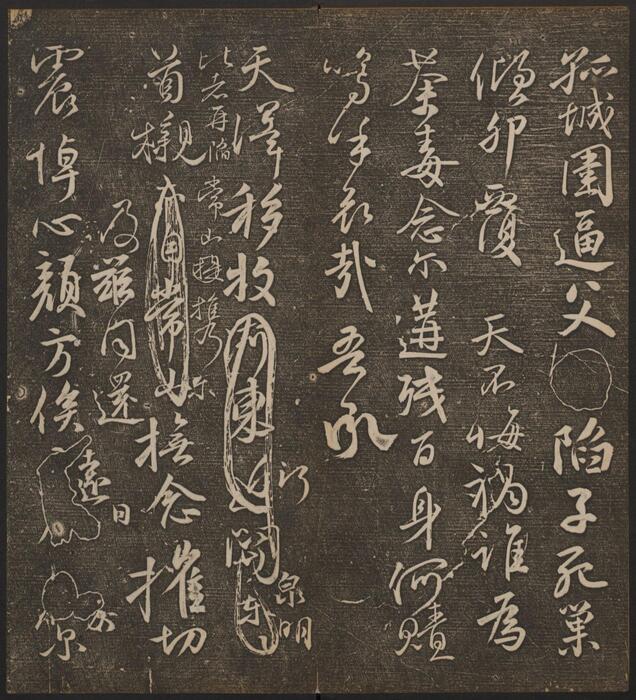 孤城圍逼父陷子死巢
傾卵覆天不悔禍誰為
荼毒念尔遘残百身何贖
嗚乎哀哉吾承
天澤移牧河東近關東
泉明
比者再陷常山提携尔
首櫬自常山撫念摧切
及兹同還
震悼心顏方俟遠日
尔